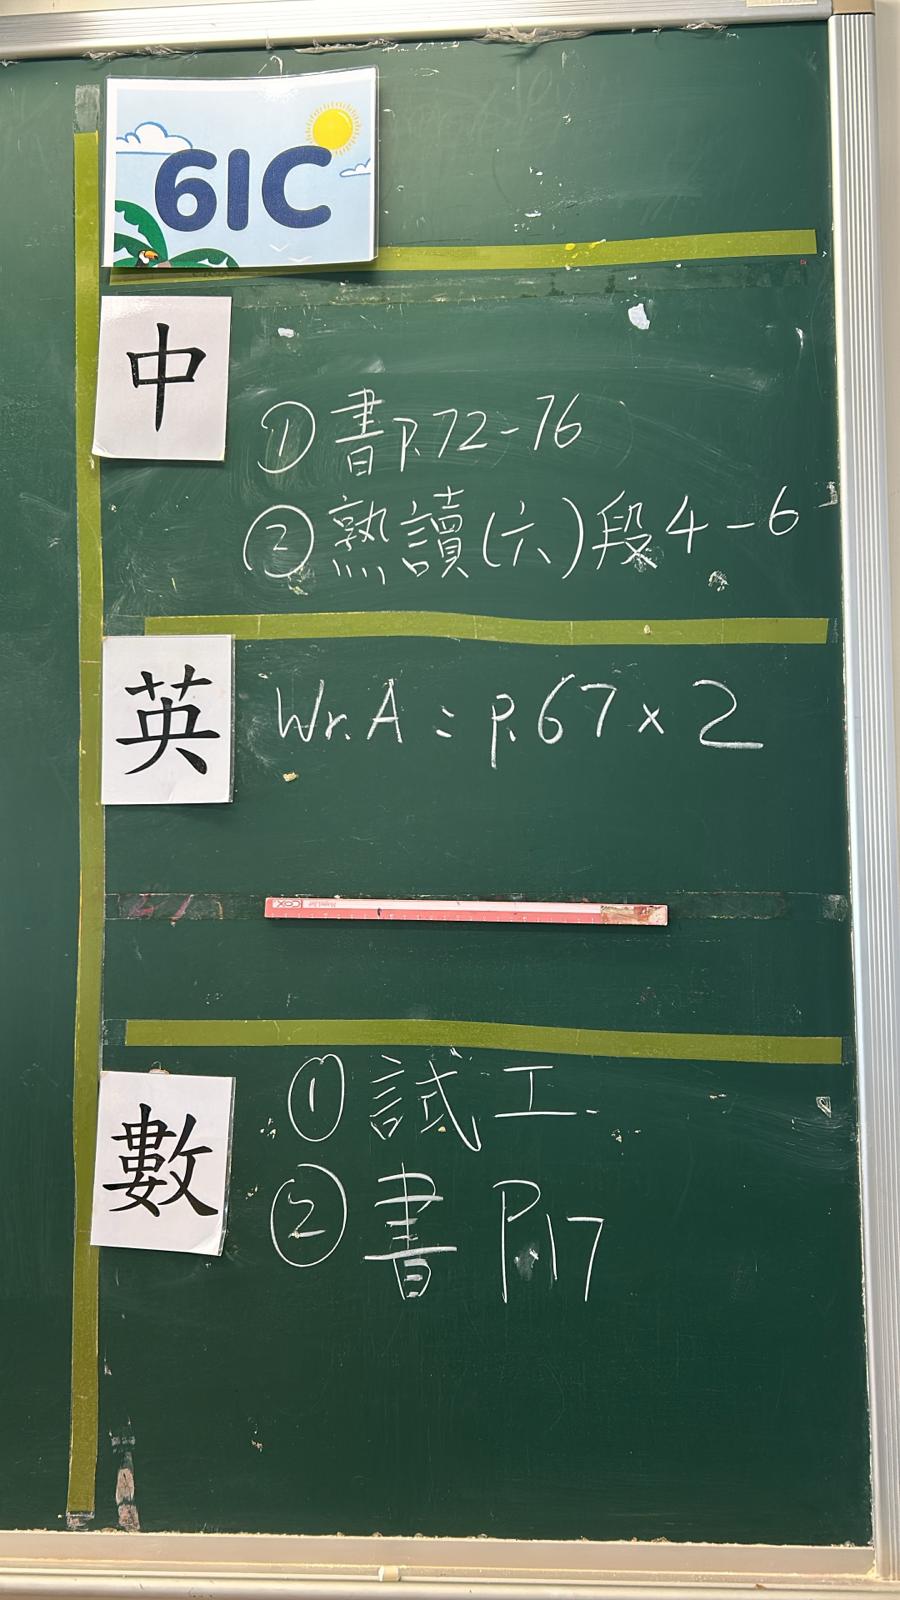 61C
中
① 書P.72-76
② 熟讀(六)段4-6
英
Wr.A : p.67 x 2
COX
數
① 試工.
② 書 P.17